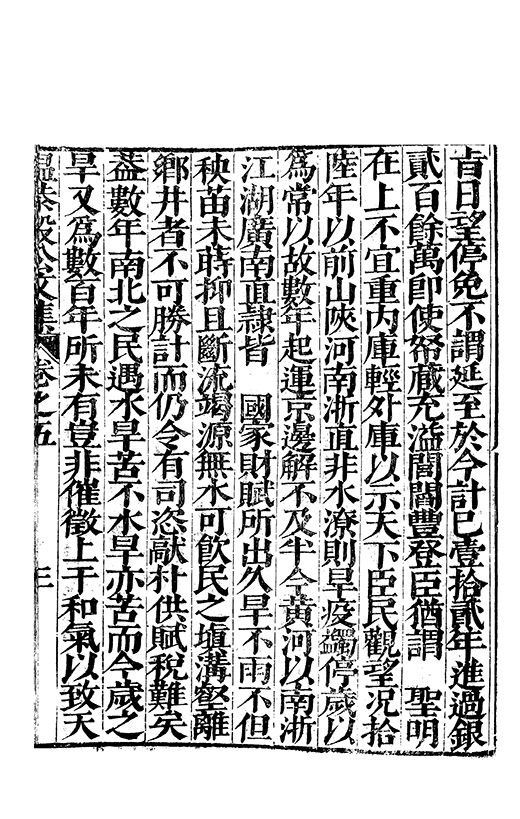 旨日望停免不謂延至於今計已壹拾貳年進過銀
貳百餘萬即使帑藏充溢閭閻豐登臣猶謂　聖明
在上不宜重内庫輕外庫以示天下臣民觀望況拾
陸年以前山陝河南浙直非水潦則旱疫蠲停歲以
爲常以故數年起運京邊解不及半今黃河以南浙
江湖廣南直隷皆　國家財賦所出久旱不雨不但
秧苗未蒔抑且斷流竭源無水可飲民之塡溝壑離
鄉井者不可勝計而仍令有司恣敲朴供賦稅難矣
葢數年南北之民遇水旱苦不水旱亦苦而今歲之
旱又爲數百年所未有豈非催徵上干和氣以致天
溫恭毅公文集　卷之五　三